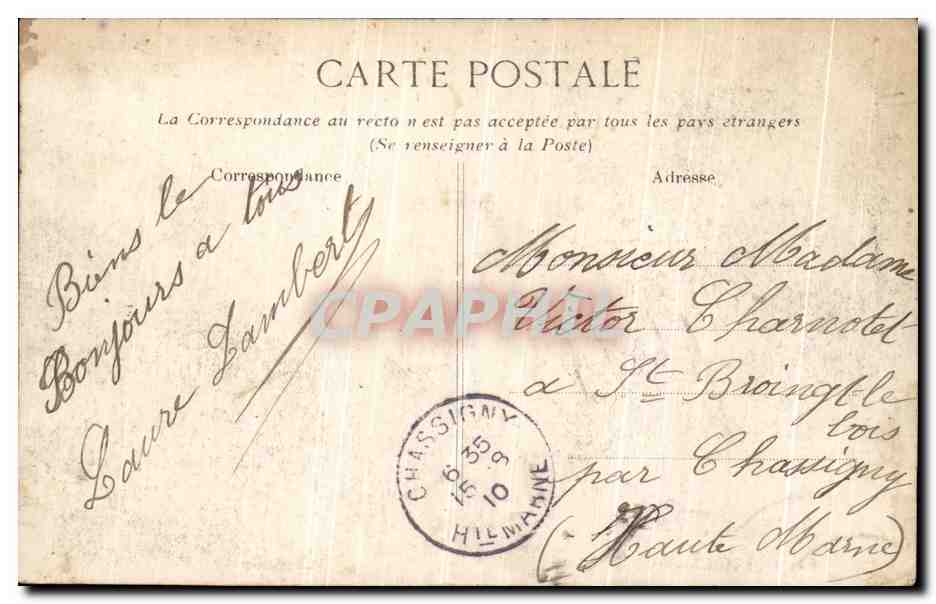 CARTE POSTALE
La Correspondance au recto n'est pas acceptée par tous les pays étrangers
(Se renseigner à la Poste)
Correspondance
Adresse
Biens le
Bonjours a tous
Laure Lambert
Monsieur Madame
Victor Charnotet
a St Broingt-le
bois
par Chassigny
(Haute Marne)
CHASSIGNY
6 35
15 9
10
HTE MARNE
CPAPHIL